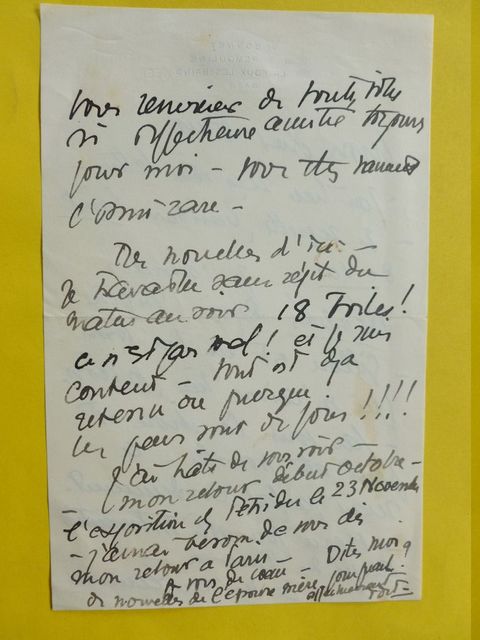 vous remercier de toute votre
si affectueuse amitié toujours
pour moi – vous êtes vraiment
l'ami rare –
Des nouelles d'ici –
Je travaille sans répit du
matin au soir 18 Toiles!
ce n'est pas mal! et je suis
content – tout est déjà
retenu ou presque.
les gens sont de fous!!!!
J'ai hâte de vous voir –
mon retour début octobre –
l'exposition le 23 Novembre
– j'aurai besoin de vous dès
mon retour a Paris
A vous de coeur – Dites moi
de nouvelles de